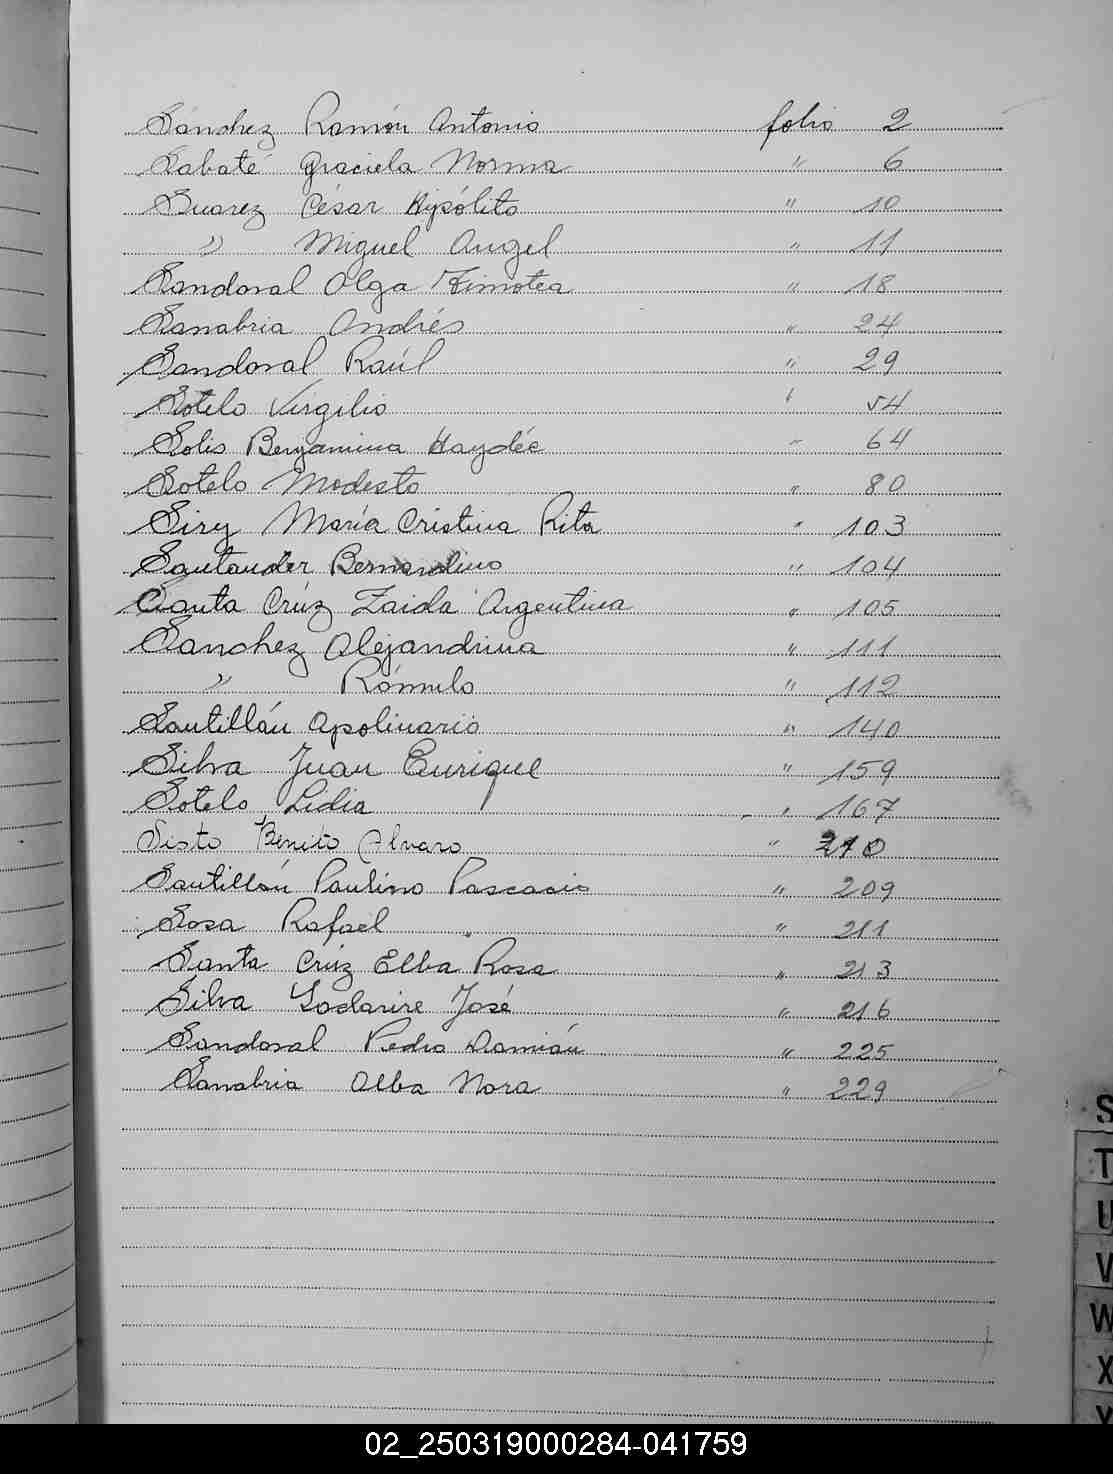 Sánchez Ramón Antonio folio 2
Sabaté Graciela Norma " 6
Suarez César Hipólito " 10
" Miguel Angel " 11
Sandoval Olga Timotea " 18
Sanabria Andrés " 24
Sandoval Raúl " 29
Sotelo Virgilio " 54
Solis Benjamina Haydée " 64
Sotelo Modesto " 80
Siry María Cristina Rita " 103
Santander Bernardino " 104
Santa Crúz Zaida Argentina " 105
Sanchez Alejandrina " 111
" Rómulo " 112
Santillán Apolinario " 140
Silva Juan Enrique " 159
Sotelo Lidia " 167
Sisto Benito Alvaro "
Santillán Paulino Pascacio " 209
Sosa Rafael " 211
Santa Crúz Elba Rosa " 213
Silva José " 216
Sandoval Pedro Damián " 225
Sanabria Alba Nora " 229
S
T
U
V
W
X
Y
02_250319000284-041759